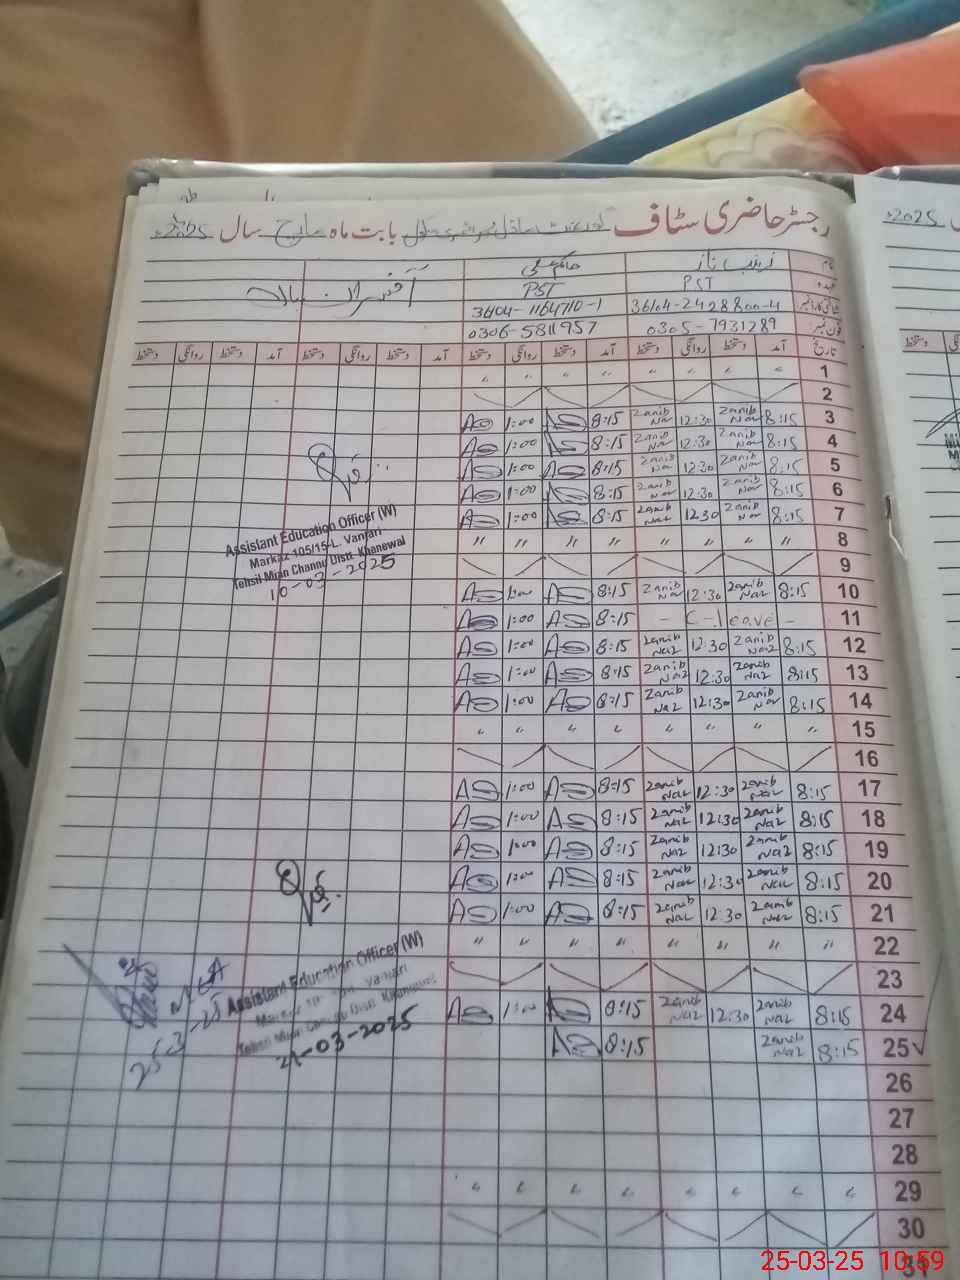 رجسٹر حاضری سٹاف گورنمنٹ ماڈل پرائمری سکول بابت ماہ مارچ سال 2025ء
نام زینب ناز
عہدہ PST PST آفیسران بالا
شناختی کارڈ نمبر 36104-2428800-4 36104-1164710-1
فون نمبر 0305-7931289 0306-5811957
تاریخ آمد دستخط روانگی دستخط آمد دستخط روانگی دستخط آمد دستخط روانگی دستخط آمد دستخط روانگی دستخط
1 " " " " " " " "
2
3 8:15 Zanib Naz 12:30 Zanib Naz 8:15 1:00
4 8:15 Zanib Naz 12:30 Zanib Naz 8:15 1:00
5 8:15 Zanib Naz 12:30 Zanib Naz 8:15 1:00
6 8:15 Zanib Naz 12:30 Zanib Naz 8:15 1:00
7 8:15 Zanib Naz 12:30 Zanib Naz 8:15 1:00
8 " " " " " " " "
9
10 8:15 Zanib Naz 12:30 Zanib Naz 8:15 1:00
11 - C-leave - 8:15 1:00
12 8:15 Zanib Naz 12:30 Zanib Naz 8:15 1:00
13 8:15 Zanib Naz 12:30 Zanib Naz 8:15 1:00
14 8:15 Zanib Naz 12:30 Zanib Naz 8:15 1:00
15 " " " " " " " "
16
17 8:15 Zanib Naz 12:30 Zanib Naz 8:15 1:00
18 8:15 Zanib Naz 12:30 Zanib Naz 8:15 1:00
19 8:15 Zanib Naz 12:30 Zanib Naz 8:15 1:00
20 8:15 Zanib Naz 12:30 Zanib Naz 8:15 1:00
21 8:15 Zanib Naz 12:30 Zanib Naz 8:15 1:00
22 " " " " " " " "
23
24 8:15 Zanib Naz 12:30 Zanib Naz 8:15 1:00
25 8:15 Zanib Naz 8:15
26
27
28
29 " " " " " " " "
30
31
Assistant Education Officer (W)
Markaz 105/15-L. Vanjari
Tehsil Mian Channu Distt. Khanewal
10-03-2025
Assistant Education Officer (W)
Vanjari
Tehsil Mian Channu Distt. Khanewal
21-03-2025
MEA
25-3-25
2025ء
25-03-25 10:59